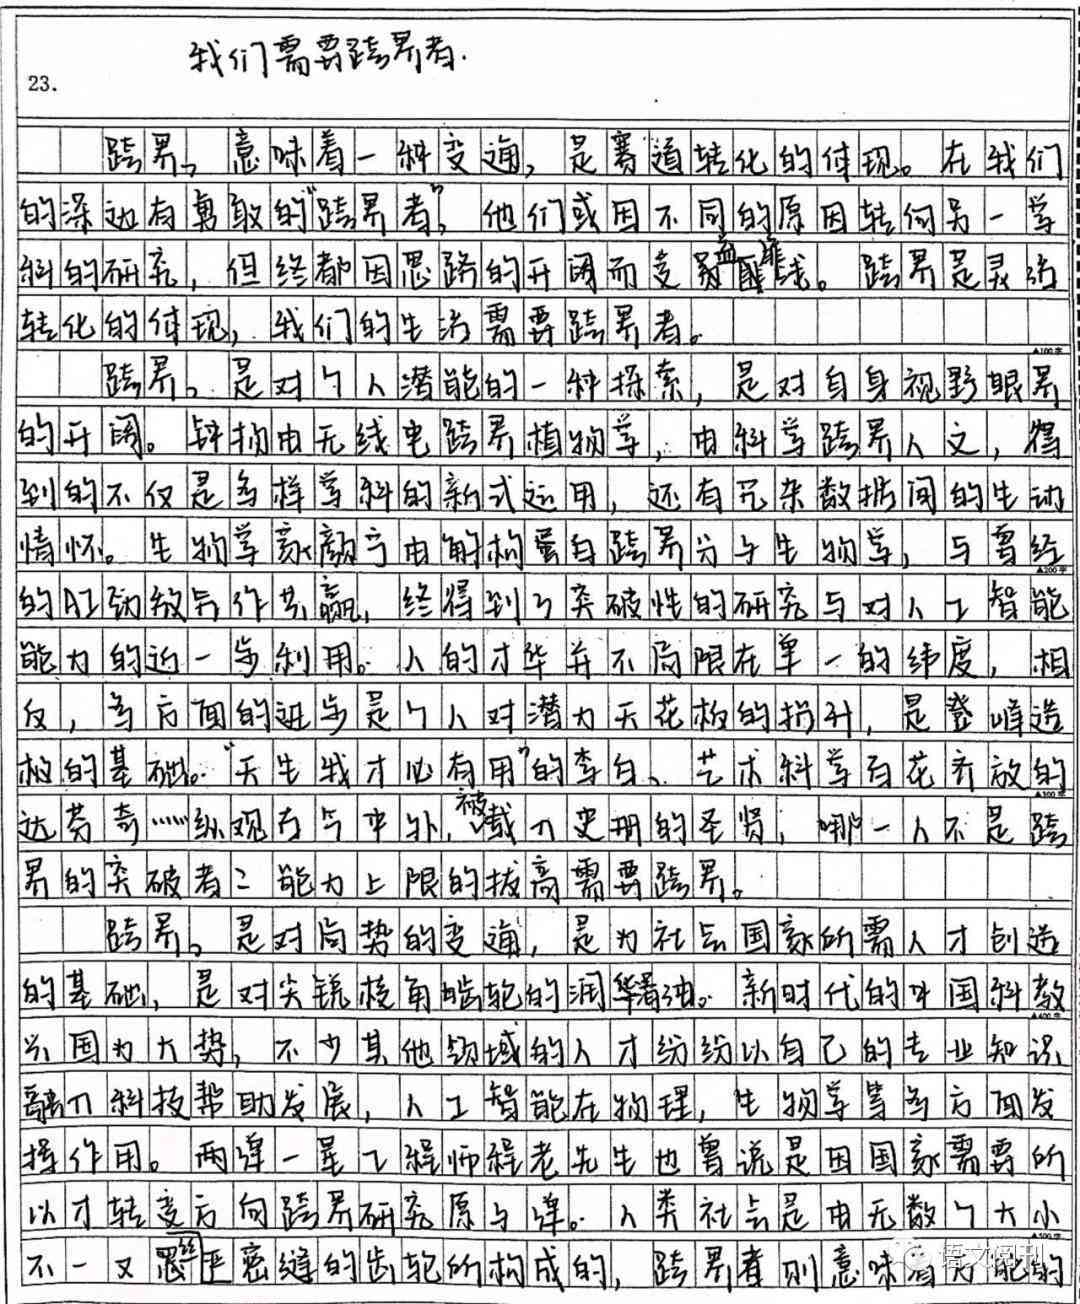 我们需要跨界者.
23.
跨界，意味着一种变通，是赛道转化的体现。在我们
的深边有勇敢的“跨界者”，他们或因不同的原因转向另一学
科的研究，但终都因思路的开阔而变。跨界是灵活
转化的体现，我们的生活需要跨界者。
▲100字
跨界，是对个人潜能的一种探索，是对自身视野眼界
的开阔。钟扬由无线电跨界植物学，由科学跨界人文，得
到的不仅是多样学科的新式运用，还有冗杂数据间的生动
情怀。生物学家颜宁由解构蛋白跨界分子生物学，与曾经
▲200字
的AI劲敌合作共赢，终得到了突破性的研究与对人工智能
能力的近一步利用。人的才华并不局限在单一的纬度，相
反，多方面的进步是个人对潜力天花板的抬升，是登峰造
极的基础。“天生我才必有用”的李白、艺术科学百花齐放的
▲300字
达芬奇……纵观古今中外，被载入史册的圣贤，哪一人不是跨
界的突破者？能力上限的拔高需要跨界。
跨界，是对局势的变通，是为社会国家所需人才创造
的基础，是对尖锐棱角齿轮的润油。新时代的中国科教
▲400字
兴国为大势，不少其他领域的人才纷纷以自己的专业知识
融入科技帮助发展，人工智能在物理，生物学等多方面发
挥作用。两弹一星工程师程老先生也曾说是因国家需要所
以才转变方向跨界研究原子弹。人类社会是由无数个大小
▲500字
不一又丝严密缝的齿轮所构成的，跨界者则意味着为能的
语文阅刊